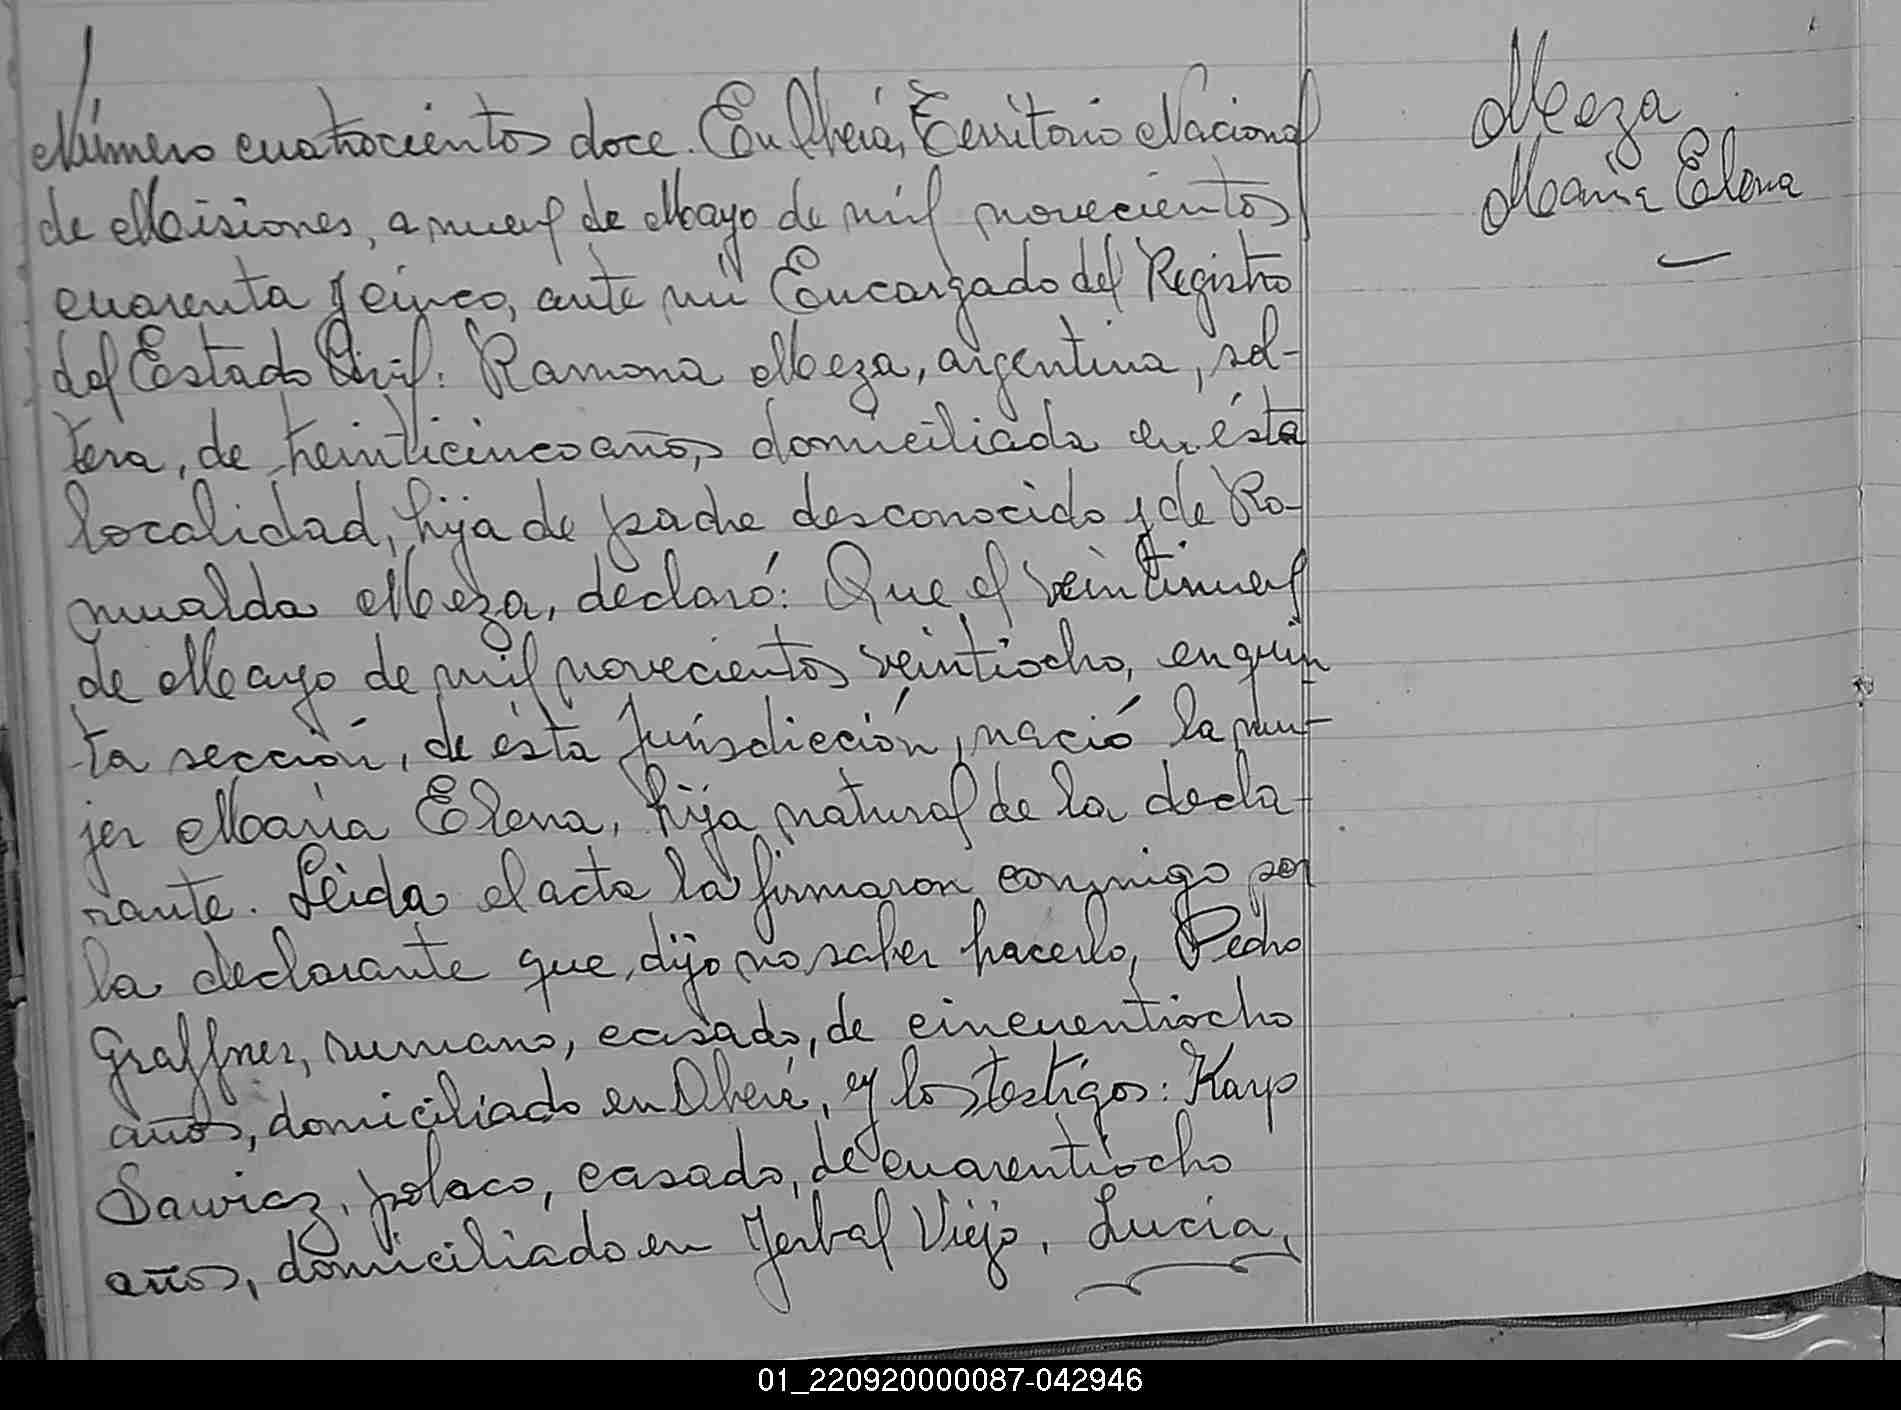 Número cuatrocientos doce. En Oberá, Territorio Nacional
de Misiones, a nueve de Mayo de mil novecientos
cuarenta y cinco, ante mi Encargado del Registro
del Estado Civil: Ramona Meza, argentina, sol-
tera, de treinticinco años, domiciliada en ésta
localidad, hija de padre desconocido y de Ro-
mualda Meza, declaró: Que el veintinueve
de Mayo de mil novecientos veintiocho, en quin
ta sección, de ésta Jurisdicción, nació la mu-
jer María Elena, hija natural de la decla-
rante. Leida el acta la firmaron conmigo por
la declarante que dijo no saber hacerlo, Pedro
Graffner, rumano, casado, de cincuentiocho
años, domiciliado en Oberá, y los testigos: Karp
Sawicz, polaco, casado, de cuarentiocho
años, domiciliado en Yerbal Viejo, Lucía,
Meza
María Elena
01_220920000087-042946